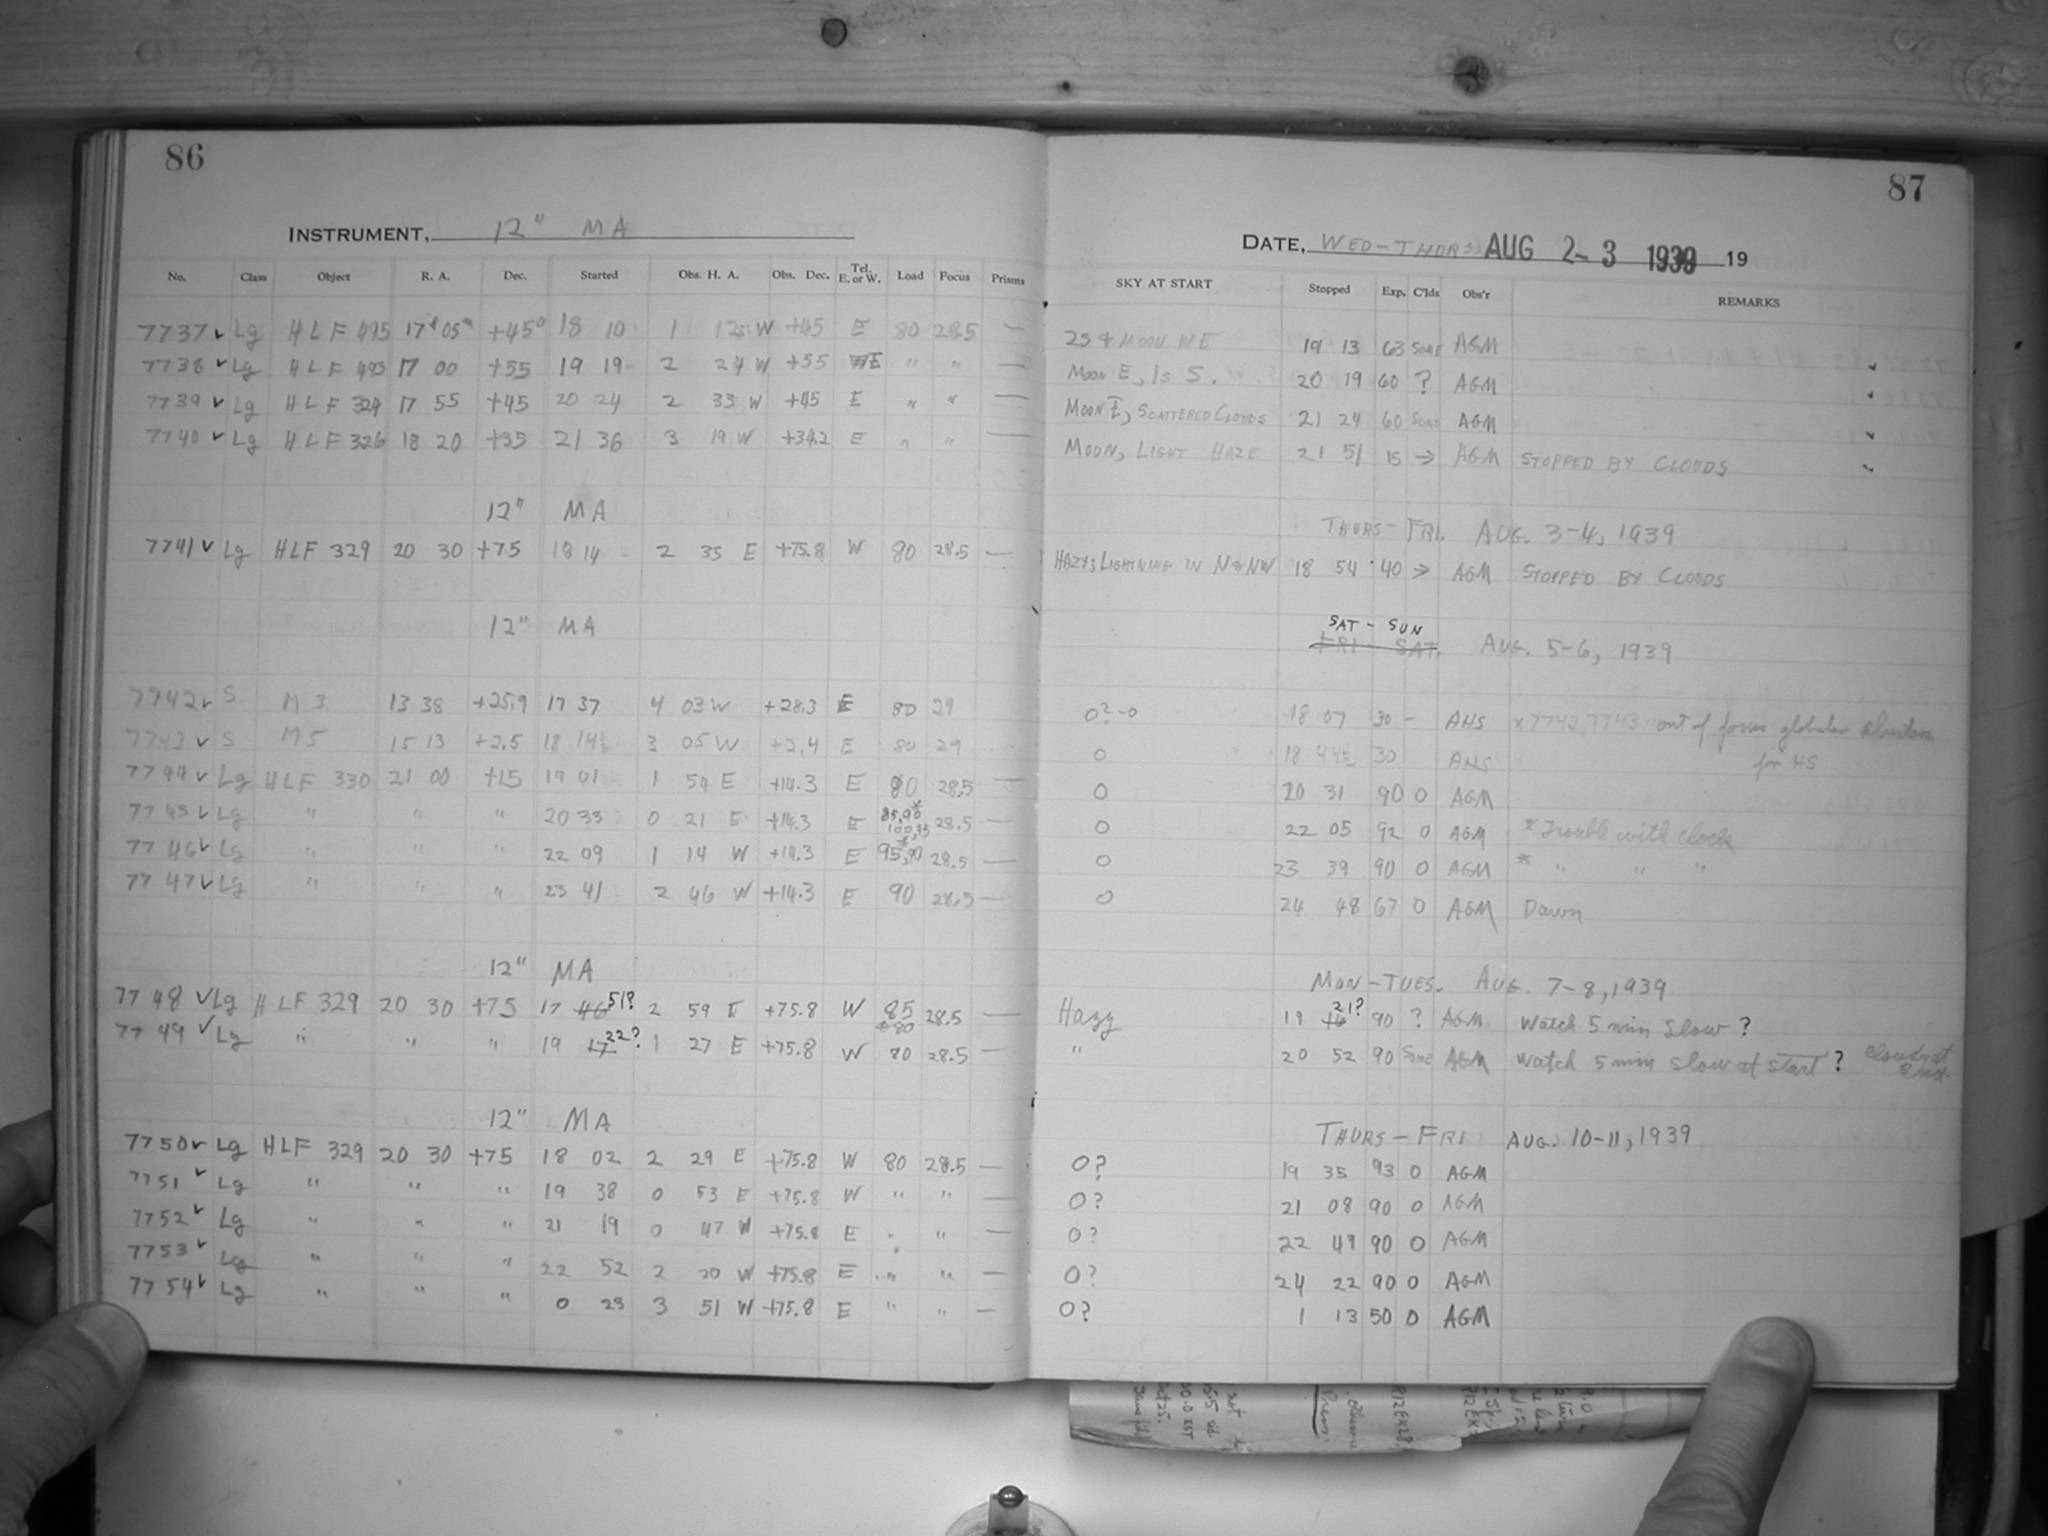 86
INSTRUMENT, 12" MA
No. Class Object R. A. Dec. Started Obs. H. A. Obs. Dec. Tel. E. or W. Load Focus Prisms
7737 ✓ Lg HLF 495 17h 05m +45° 18 10 1 12 W +45 E 80 28.5 —
7738 ✓ Lg HLF 493 17 00 +55 19 19 2 24 W +55 E " " —
7739 ✓ Lg HLF 324 17 55 +45 20 24 2 33 W +45 E " " —
7740 ✓ Lg HLF 326 18 20 +35 21 36 3 19 W +34.2 E " " —
12" MA
7741 ✓ Lg HLF 329 20 30 +75 18 14 2 35 E +75.8 W 80 28.5 —
12" MA
7742 ✓ S M 3 13 38 +25.9 17 37 4 03 W +28.3 E 80 29
7743 ✓ S M 5 15 13 +2.5 18 14½ 3 05 W +2.4 E 80 29
7744 ✓ Lg HLF 330 21 00 +15 19 01 1 54 E +14.3 E 80 28.5 —
7745 ✓ Lg " " " 20 33 0 21 E +14.3 E 28.5 —
7746 ✓ Lg " " " 22 09 1 14 W +14.3 E 95,90* 28.5 —
7747 ✓ Lg " " " 23 41 2 46 W +14.3 E 90 28.5 —
12" MA
7748 ✓ Lg HLF 329 20 30 +75 17 46 51? 2 59 E +75.8 W 85 28.5 —
7749 ✓ Lg " " " 19 17 22? 1 27 E +75.8 W 80 28.5 —
12" MA
7750 ✓ Lg HLF 329 20 30 +75 18 02 2 29 E +75.8 W 80 28.5 —
7751 ✓ Lg " " " 19 38 0 53 E +75.8 W " " —
7752 ✓ Lg " " " 21 19 0 47 W +75.8 E " " —
7753 ✓ Lg " " " 22 52 2 20 W +75.8 E " " —
7754 ✓ Lg " " " 0 23 3 51 W +75.8 E " " —
87
DATE, WED-THURS AUG 2-3 1939 19
SKY AT START Stopped Exp. C'lds Obs'r REMARKS
2S & MOON WE 19 13 63 SOME AGM ✓
MOON E, 1s S. 20 19 60 ? AGM ✓
MOON E, SCATTERED CLOUDS 21 24 60 SOME AGM ✓
MOON, LIGHT HAZE 21 51 15 → AGM STOPPED BY CLOUDS ✓
THURS-FRI. AUG. 3-4, 1939
HAZY; LIGHTNING IN N & NW 18 54 40 → AGM STOPPED BY CLOUDS
SAT - SUN
FRI - SAT. AUG. 5-6, 1939
0?-0 18 07 30 - AHS x 7742, 7743 out of focus globular clusters
0 18 44½ 30 AHS for HS
0 20 31 90 0 AGM
0 22 05 92 0 AGM * Trouble with clock
0 23 39 90 0 AGM * " " "
0 24 48 67 0 AGM Dawn
MON-TUES. AUG. 7-8, 1939
Hazy 19 16 21? 90 ? AGM Watch 5 min slow?
" 20 52 90 Some AGM Watch 5 min slow at start? Clouds at end.
THURS-FRI AUG. 10-11, 1939
0? 19 35 93 0 AGM
0? 21 08 90 0 AGM
0? 22 49 90 0 AGM
0? 24 22 90 0 AGM
0? 1 13 50 0 AGM